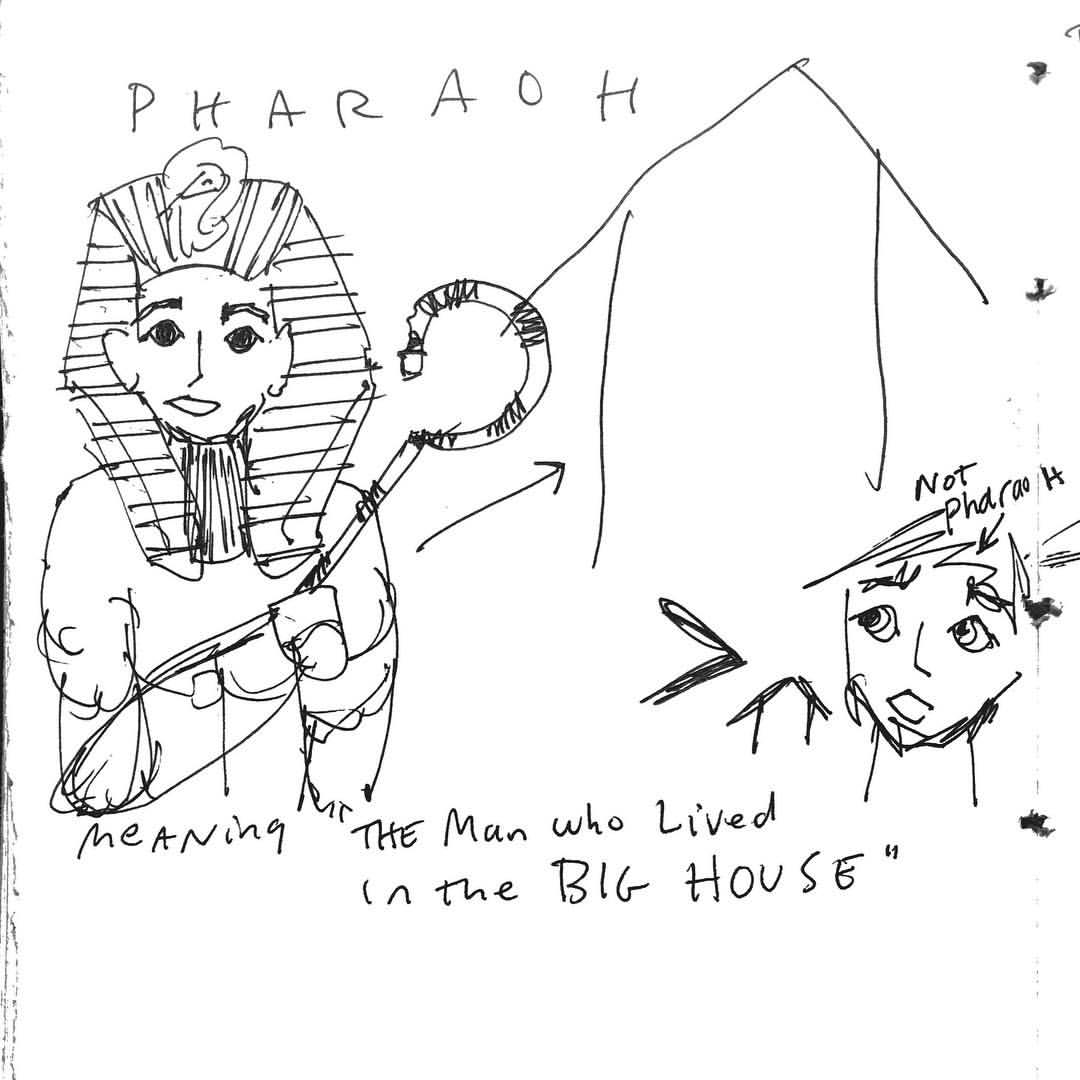 PHARAOH
Not
PharaoH
MeANiNg "THE Man who Lived
in the BIG HOUSE"